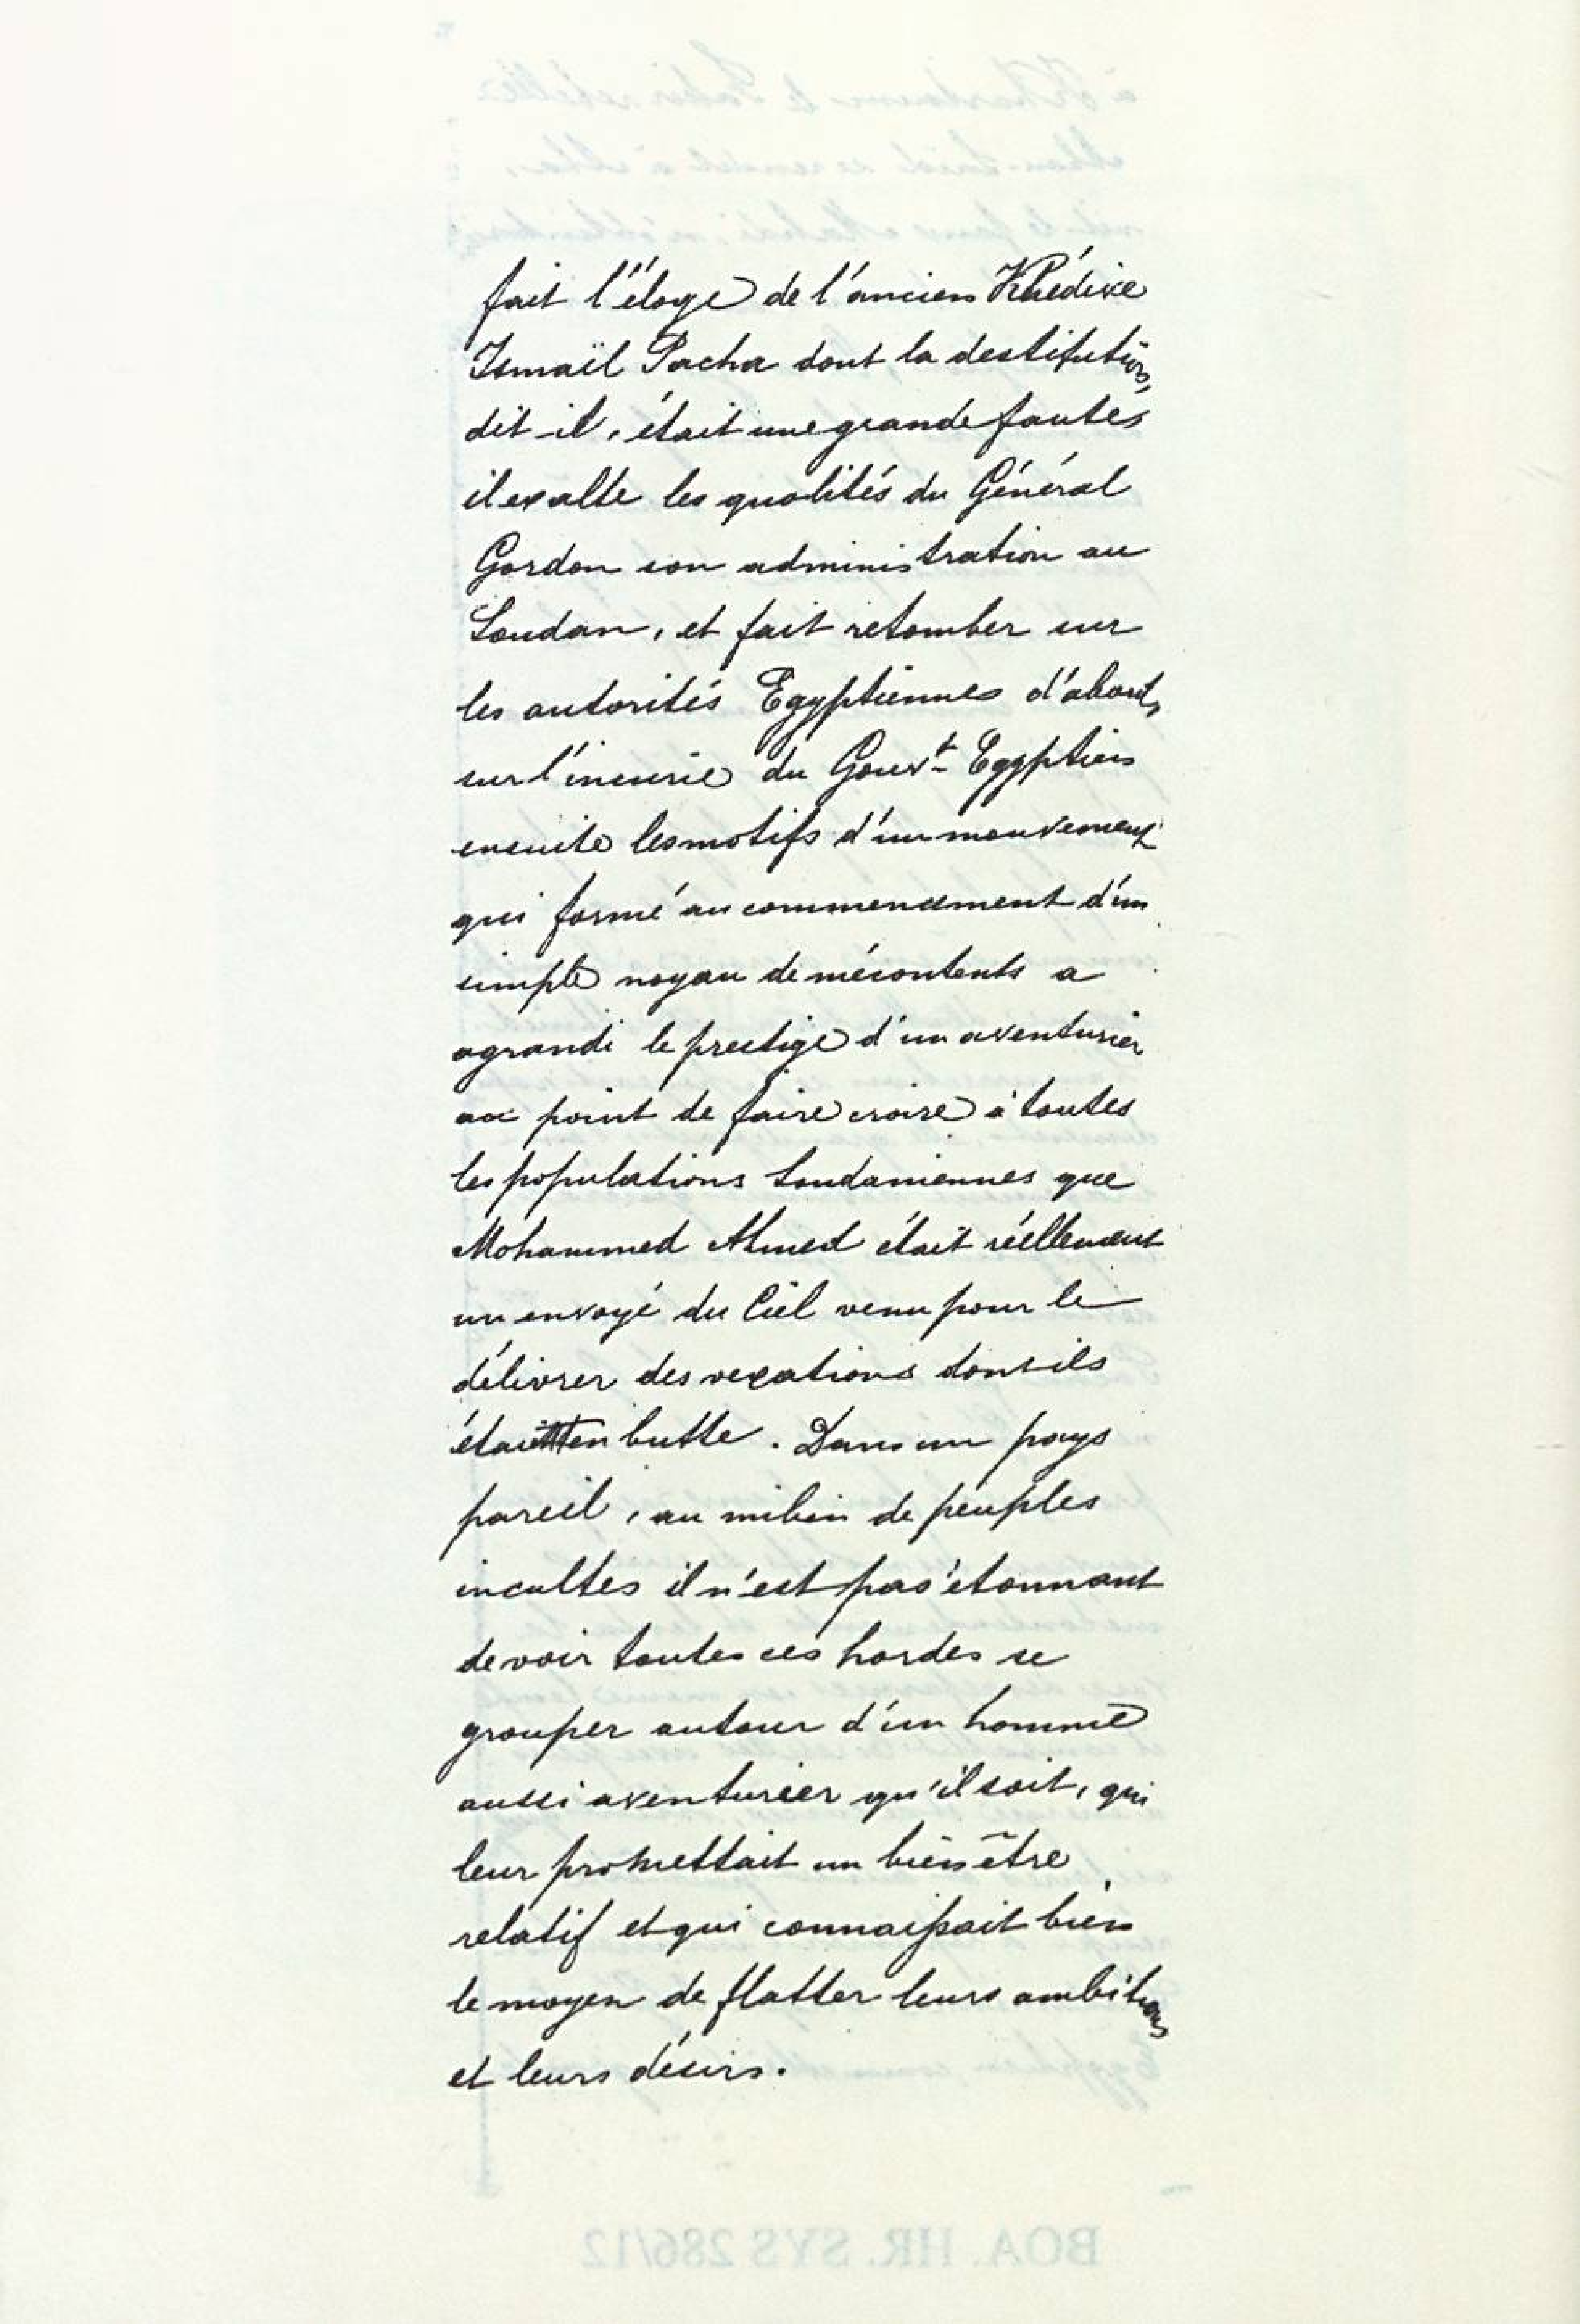 fait l'éloge de l'ancien Khédive
Ismaïl Pacha dont la destitution,
dit-il, était une grande faute
il exalte les qualités du Général
Gordon son administration au
Soudan, et fait retomber sur
les autorités Egyptiennes d'abord,
sur l'incurie du Gouvt Egyptien
ensuite les motifs d'un mouvement
qui formé au commencement d'un
simple noyau de mécontents a
agrandi le prestige d'un aventurier
au point de faire croire à toutes
les populations Soudaniennes que
Mohammed Ahmed était réellement
un envoyé du Ciel venu pour le
délivrer des vexations dont ils
étaient en butte. Dans un pays
pareil, au milieu de peuples
incultes il n'est pas étonnant
de voir toutes ces hordes se
grouper autour d'un homme
aussi aventurier qu'il soit, qui
leur promettait un bien être
relatif et qui connaissait bien
le moyen de flatter leurs ambitions
et leurs désirs.
BOA. HR. SYS 286/12